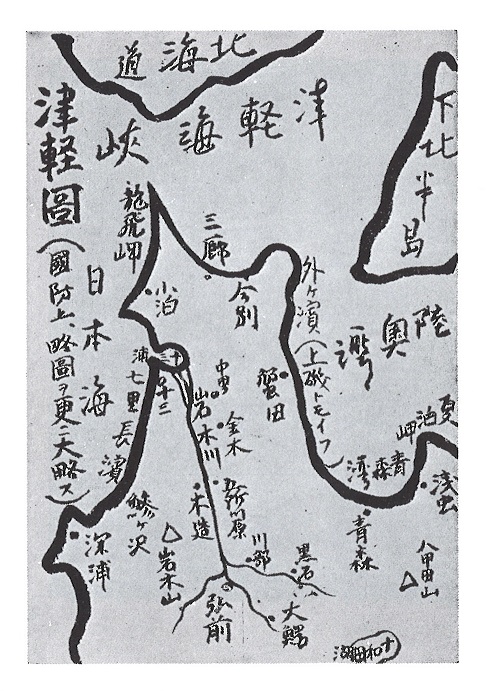 津軽圖
(國防上、略圖ヲ更ニ大略ス)
北海道
津軽海峡
下北半島
陸奥灣
日本海
龍飛岬
三厩
今別
小泊
外ヶ濱(上磯トモイフ)
蟹田
十三
十三
七里長濱
中里
金木
岩木川
五所川原
木造
鰺ヶ沢
深浦
岩木山
弘前
川部
黒石
大鰐
青森
青森灣
夏泊岬
浅虫
八甲田山
十和田湖